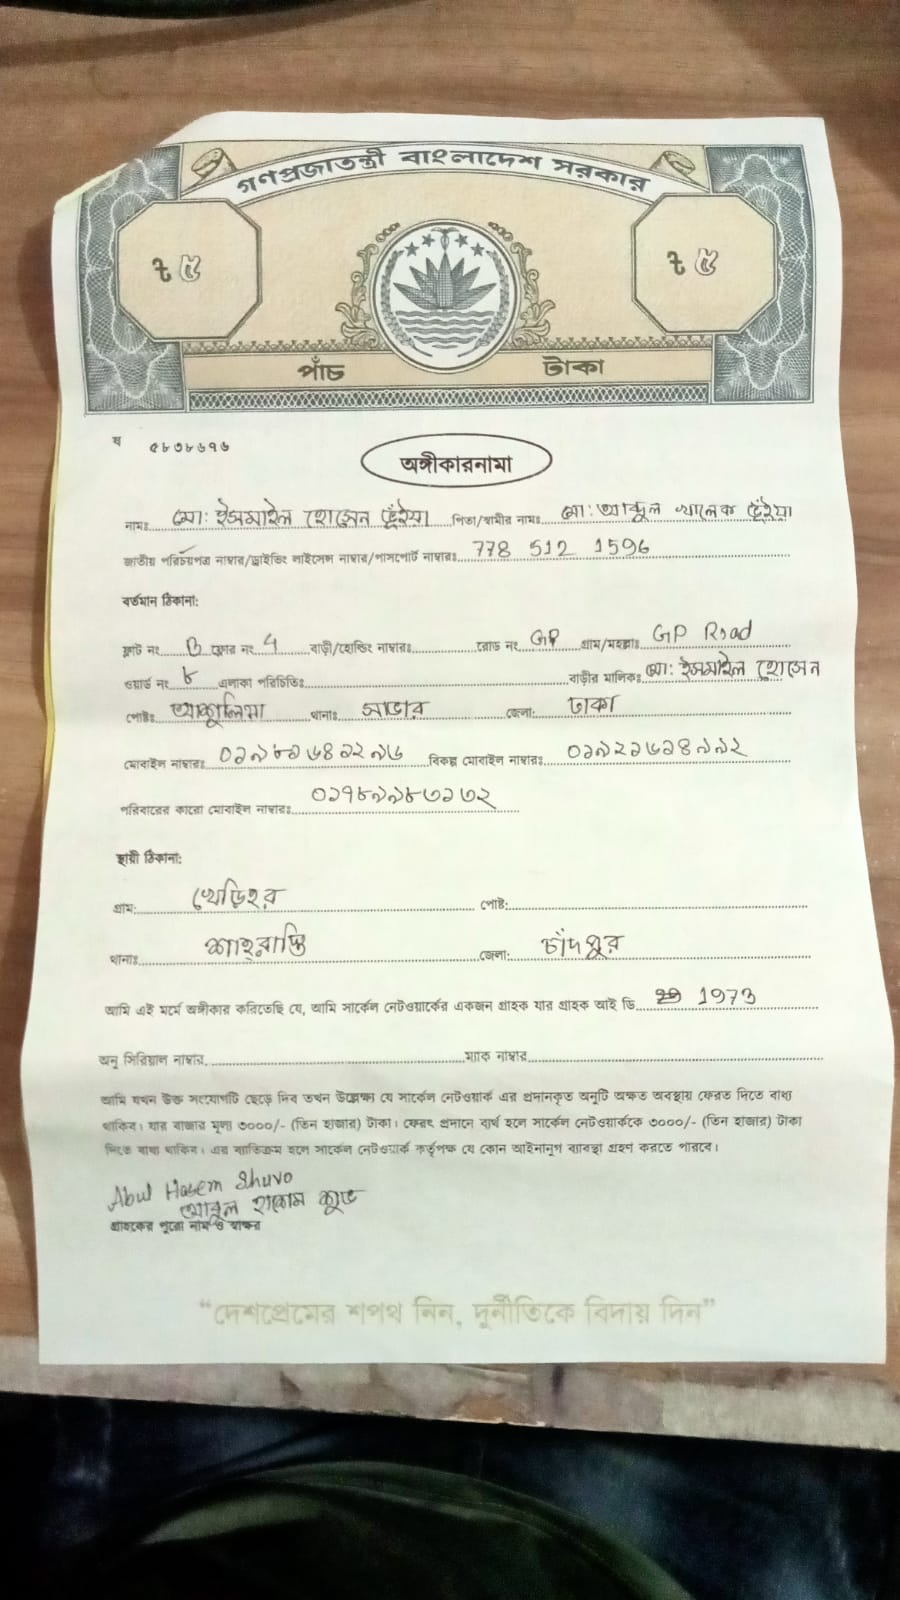 গণপ্রজাতন্ত্রী বাংলাদেশ সরকার
৳ ৫ ৳ ৫
পাঁচ টাকা
ষ ৫৮৩৮৬৭৬
অঙ্গীকারনামা
নামঃ মো: ইসমাইল হোসেন ভূঁইয়া পিতা/স্বামীর নামঃ মো: আব্দুল খালেক ভূঁইয়া
জাতীয় পরিচয়পত্র নাম্বার/ড্রাইভিং লাইসেন্স নাম্বার/পাসপোর্ট নাম্বারঃ 778 512 1596
বর্তমান ঠিকানা:
ফ্লাট নং B ফ্লোর নং 4 বাড়ী/হোল্ডিং নাম্বারঃ রোড নং GP গ্রাম/মহল্লাঃ GP Road
ওয়ার্ড নং ৮ এলাকা পরিচিতিঃ বাড়ীর মালিকঃ মো: ইসমাইল হোসেন
পোষ্টঃ থানাঃ সাভার জেলা: ঢাকা
মোবাইল নাম্বারঃ বিকল্প মোবাইল নাম্বারঃ
পরিবারের কারো মোবাইল নাম্বারঃ
স্থায়ী ঠিকানা:
গ্রাম: খেড়িহর পোষ্ট:
থানাঃ শাহরাস্তি জেলা: চাঁদপুর
আমি এই মর্মে অঙ্গীকার করিতেছি যে, আমি সার্কেল নেটওয়ার্কের একজন গ্রাহক যার গ্রাহক আই ডি 1973
অনু সিরিয়াল নাম্বার, ম্যাক নাম্বার
আমি যখন উক্ত সংযোগটি ছেড়ে দিব তখন উল্লেক্ষ্য যে সার্কেল নেটওয়ার্ক এর প্রদানকৃত অনুটি অক্ষত অবস্থায় ফেরত দিতে বাধ্য
থাকিব। যার বাজার মূল্য ৩০০০/- (তিন হাজার) টাকা। ফেরৎ প্রদানে ব্যর্থ হলে সার্কেল নেটওয়ার্ককে ৩০০০/- (তিন হাজার) টাকা
দিতে বাধ্য থাকিব। এর ব্যতিক্রম হলে সার্কেল নেটওয়ার্ক কর্তৃপক্ষ যে কোন আইনানুগ ব্যবস্থা গ্রহণ করতে পারবে।
Abul Hasem Shuvo
আবুল হাসেম শুভ
গ্রাহকের পুরো নাম ও স্বাক্ষর
“দেশপ্রেমের শপথ নিন, দুর্নীতিকে বিদায় দিন”